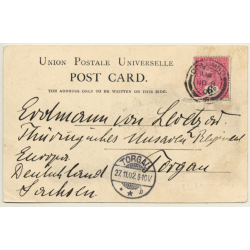 Union Postale Universelle
POST CARD.
THE ADDRESS ONLY TO BE WRITTEN ON THIS SIDE.
Erdmann von
Thüringisches Husaren Regiment
Europa
Deutschland
Torgau
Sachsen
TORGAU
27.11.02. 8-10V.